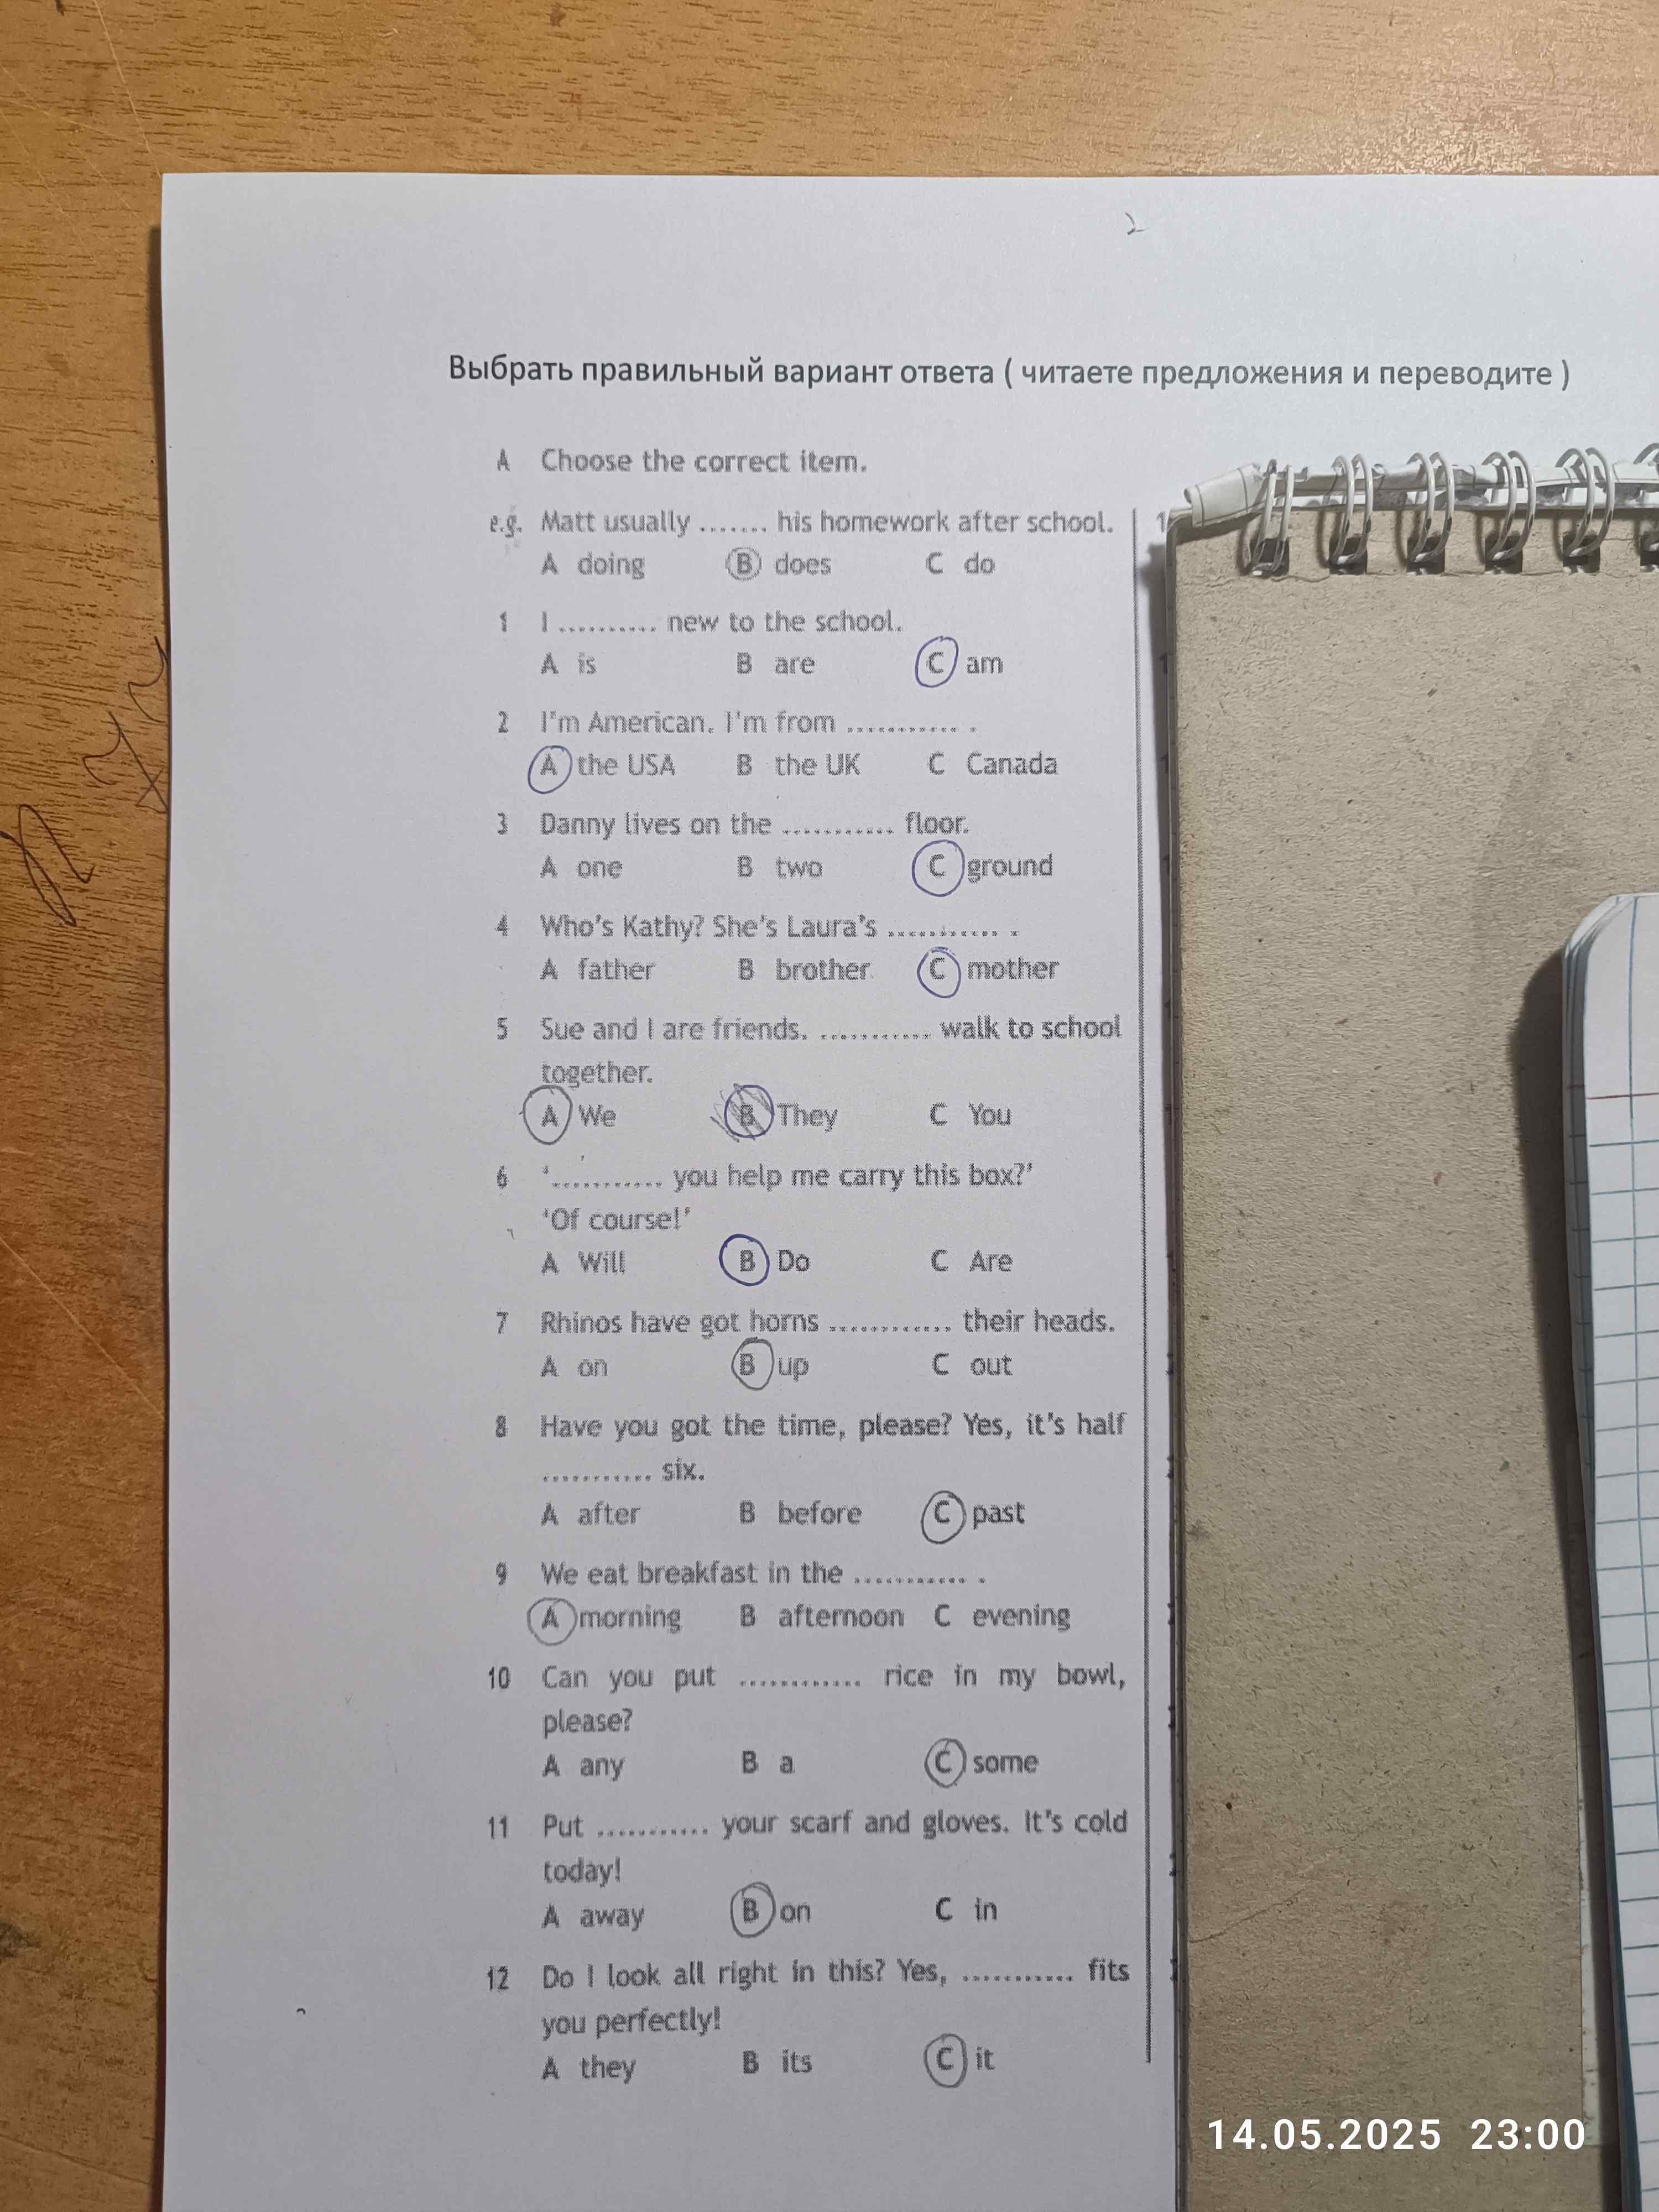 2
Выбрать правильный вариант ответа ( читаете предложения и переводите )
A Choose the correct item.
e.g. Matt usually ....... his homework after school.
A doing B does C do
1 I .......... new to the school.
A is B are C am
2 I'm American. I'm from ........... .
A the USA B the UK C Canada
3 Danny lives on the ........... floor.
A one B two C ground
4 Who's Kathy? She's Laura's ........... .
A father B brother C mother
5 Sue and I are friends. ........... walk to school
together.
A We B They C You
6 '........... you help me carry this box?'
'Of course!'
A Will B Do C Are
7 Rhinos have got horns ............ their heads.
A on B up C out
8 Have you got the time, please? Yes, it's half
........... six.
A after B before C past
9 We eat breakfast in the ........... .
A morning B afternoon C evening
10 Can you put ............ rice in my bowl,
please?
A any B a C some
11 Put ........... your scarf and gloves. It's cold
today!
A away B on C in
12 Do I look all right in this? Yes, ........... fits
you perfectly!
A they B its C it
14.05.2025 23:00